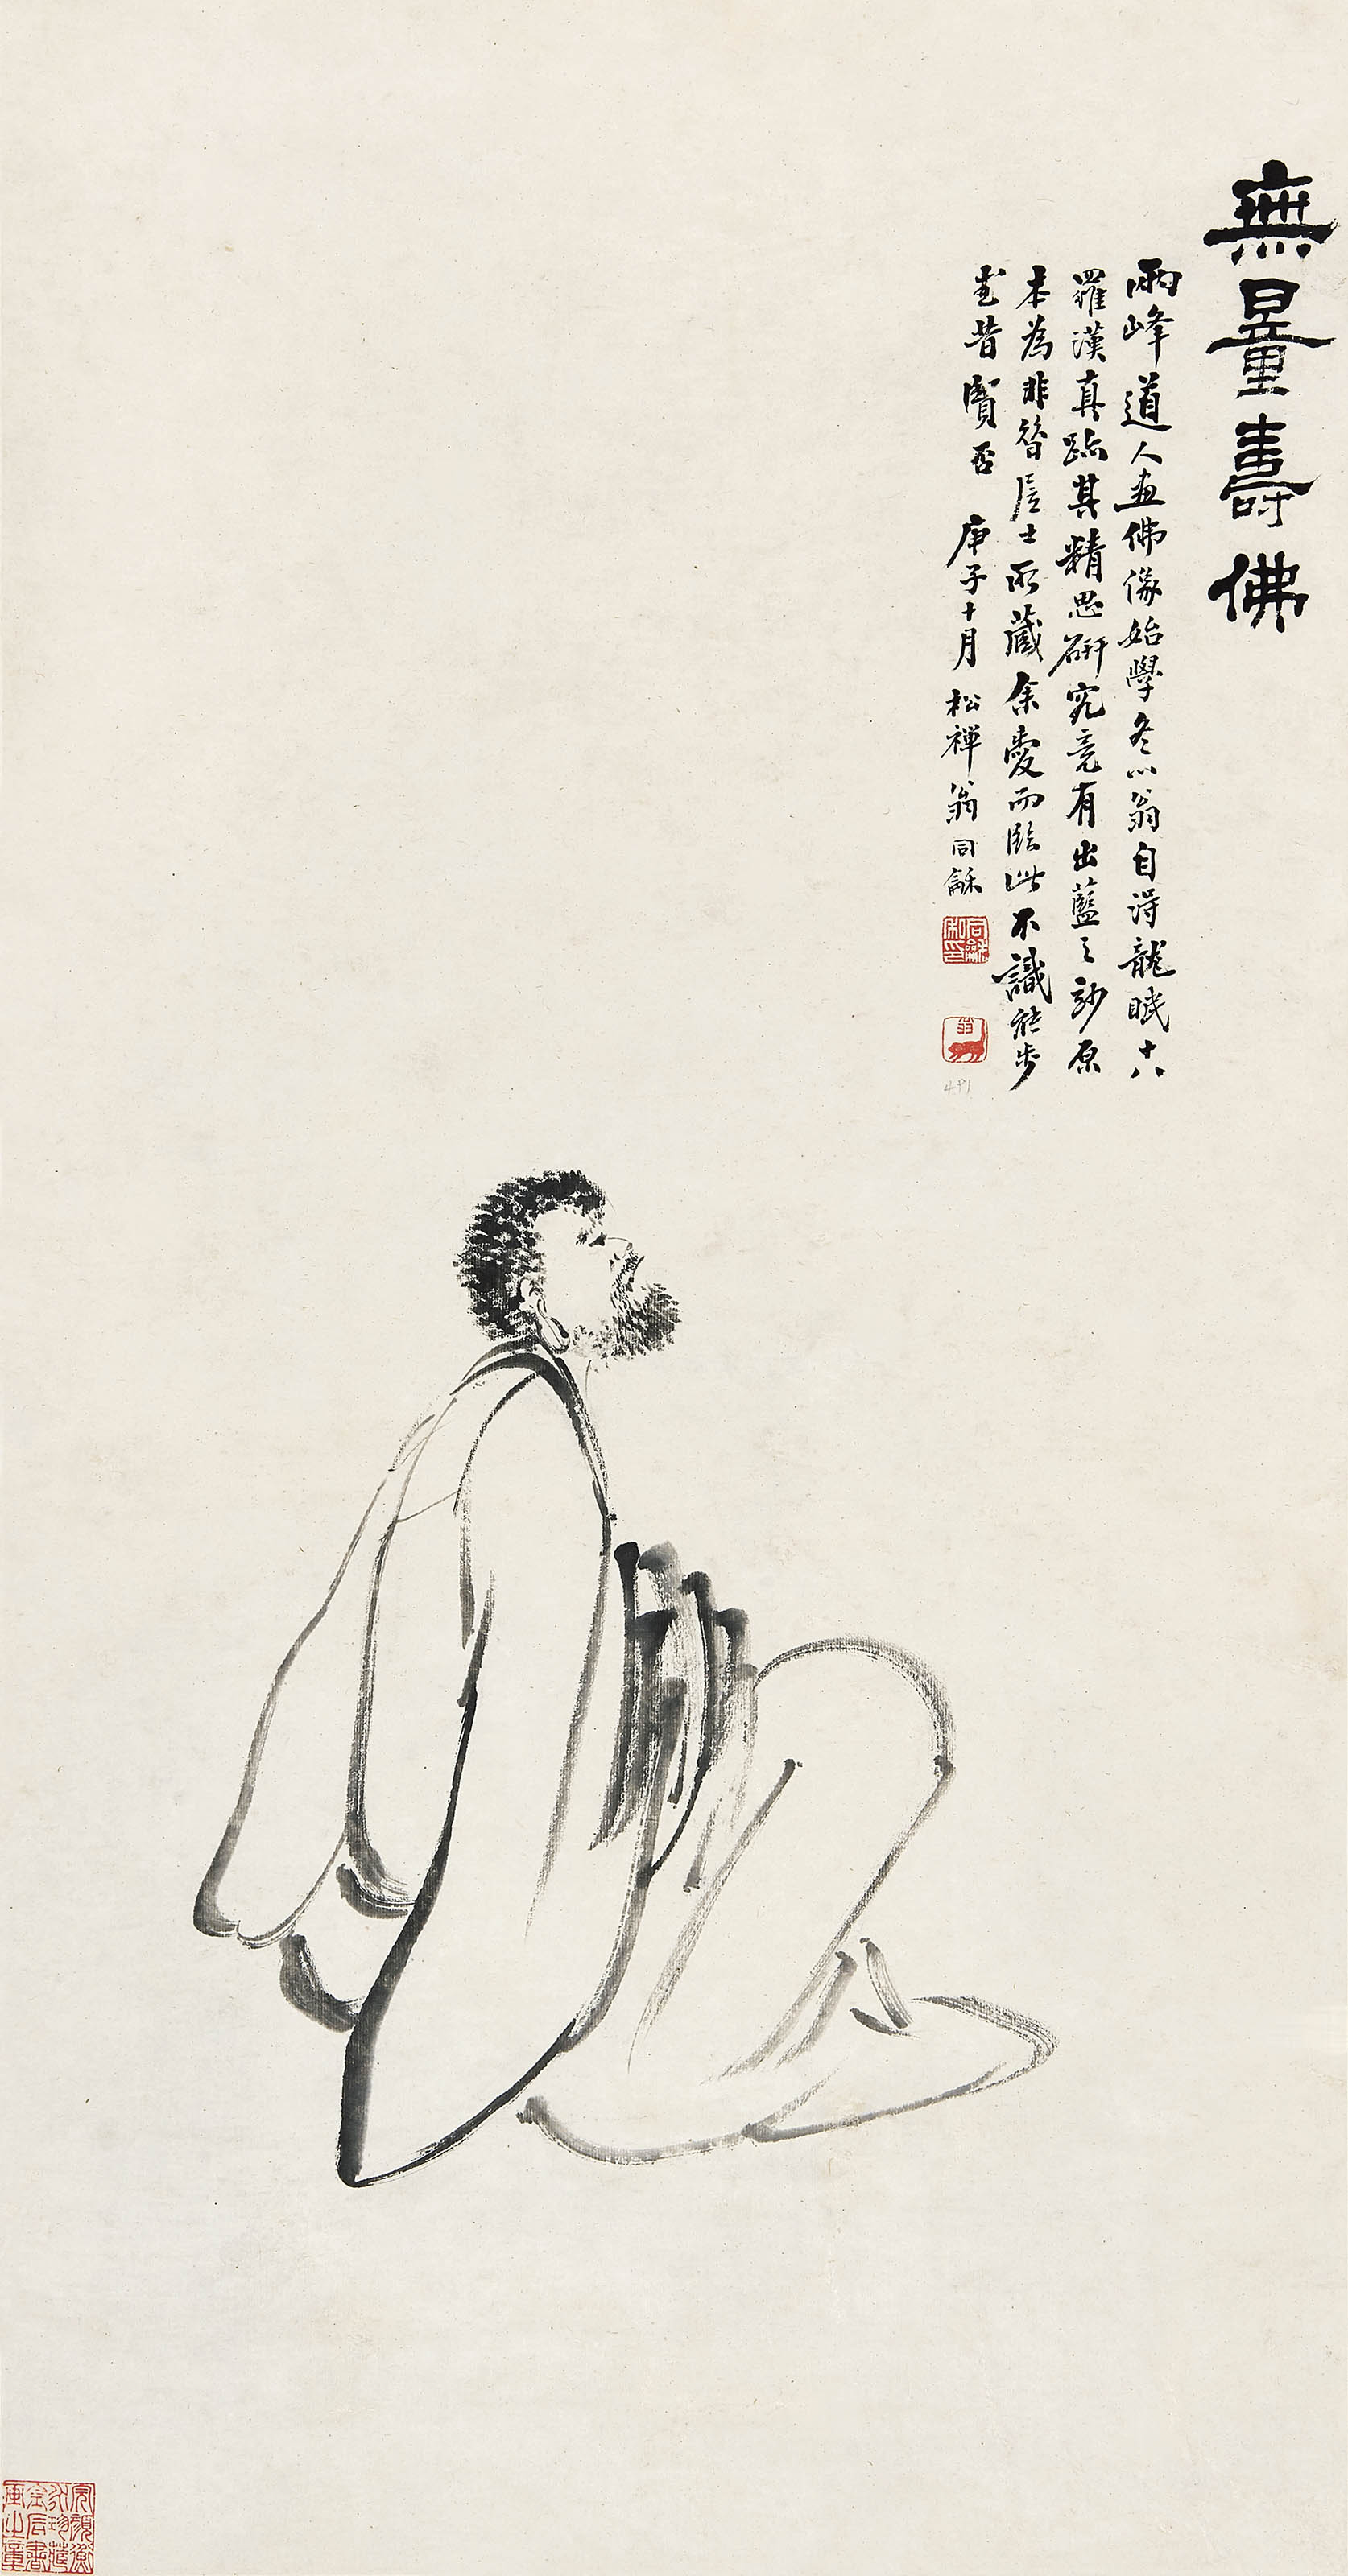 無量壽佛
兩峰道人畫佛像始學冬心翁自得龍眠十八
羅漢真跡其精思研究竟有出藍之妙原
本為非昝居士所藏余愛而臨此不識能步
武昔賢否 庚子十月 松禪翁同龢
同龢印
翁
491